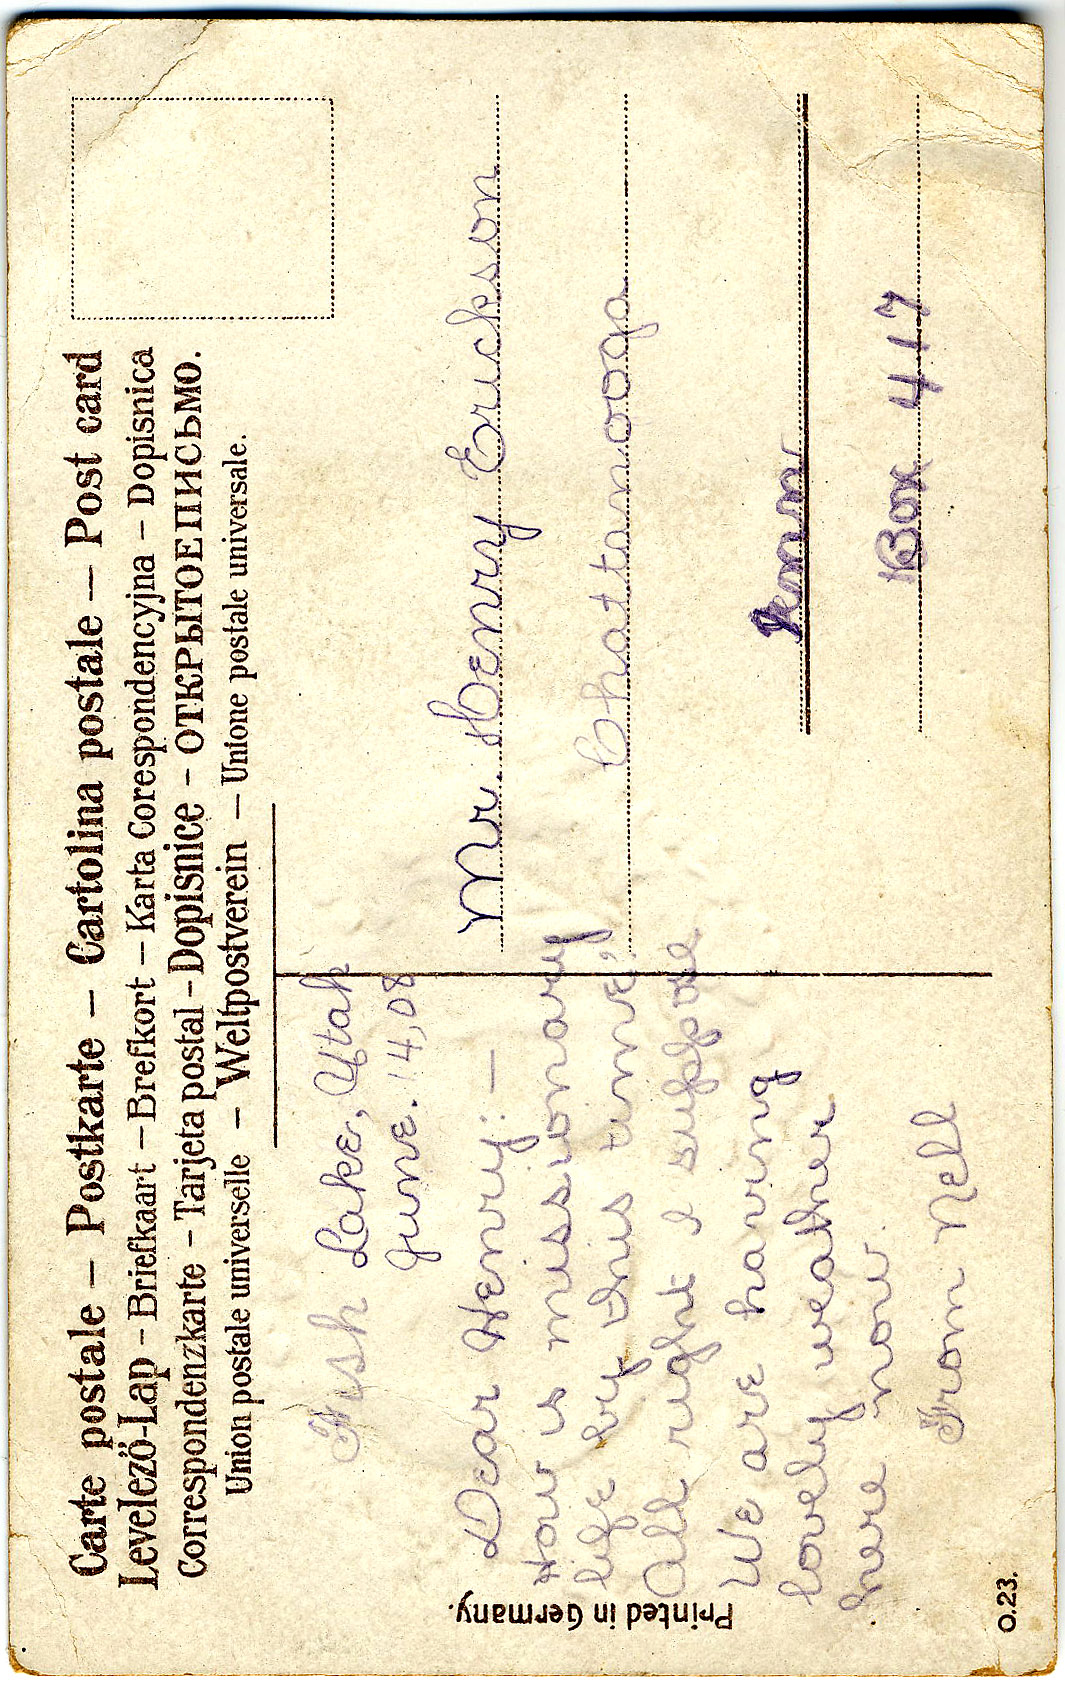 Carte postale – Postkarte – Cartolina postale – Post card
Levelező-Lap – Briefkaart – Brefkort – Karta Corespondencyjna – Dopisnica
Correspondenzkarte – Tarjeta postal – Dopisnice – ОТКРЫТОЕ ПИСЬМО.
Union postale universelle – Weltpostverein – Unione postale universale.
Fish Lake, Utah
June. 14, 08
Dear Henry: –
How is missionary
life by this time,
All right I suppose
We are having
lovely weather
here now
From Nell
Mr. Henry Erickson
Chattanooga
Tenn
Box 417
Printed in Germany.
O.23.